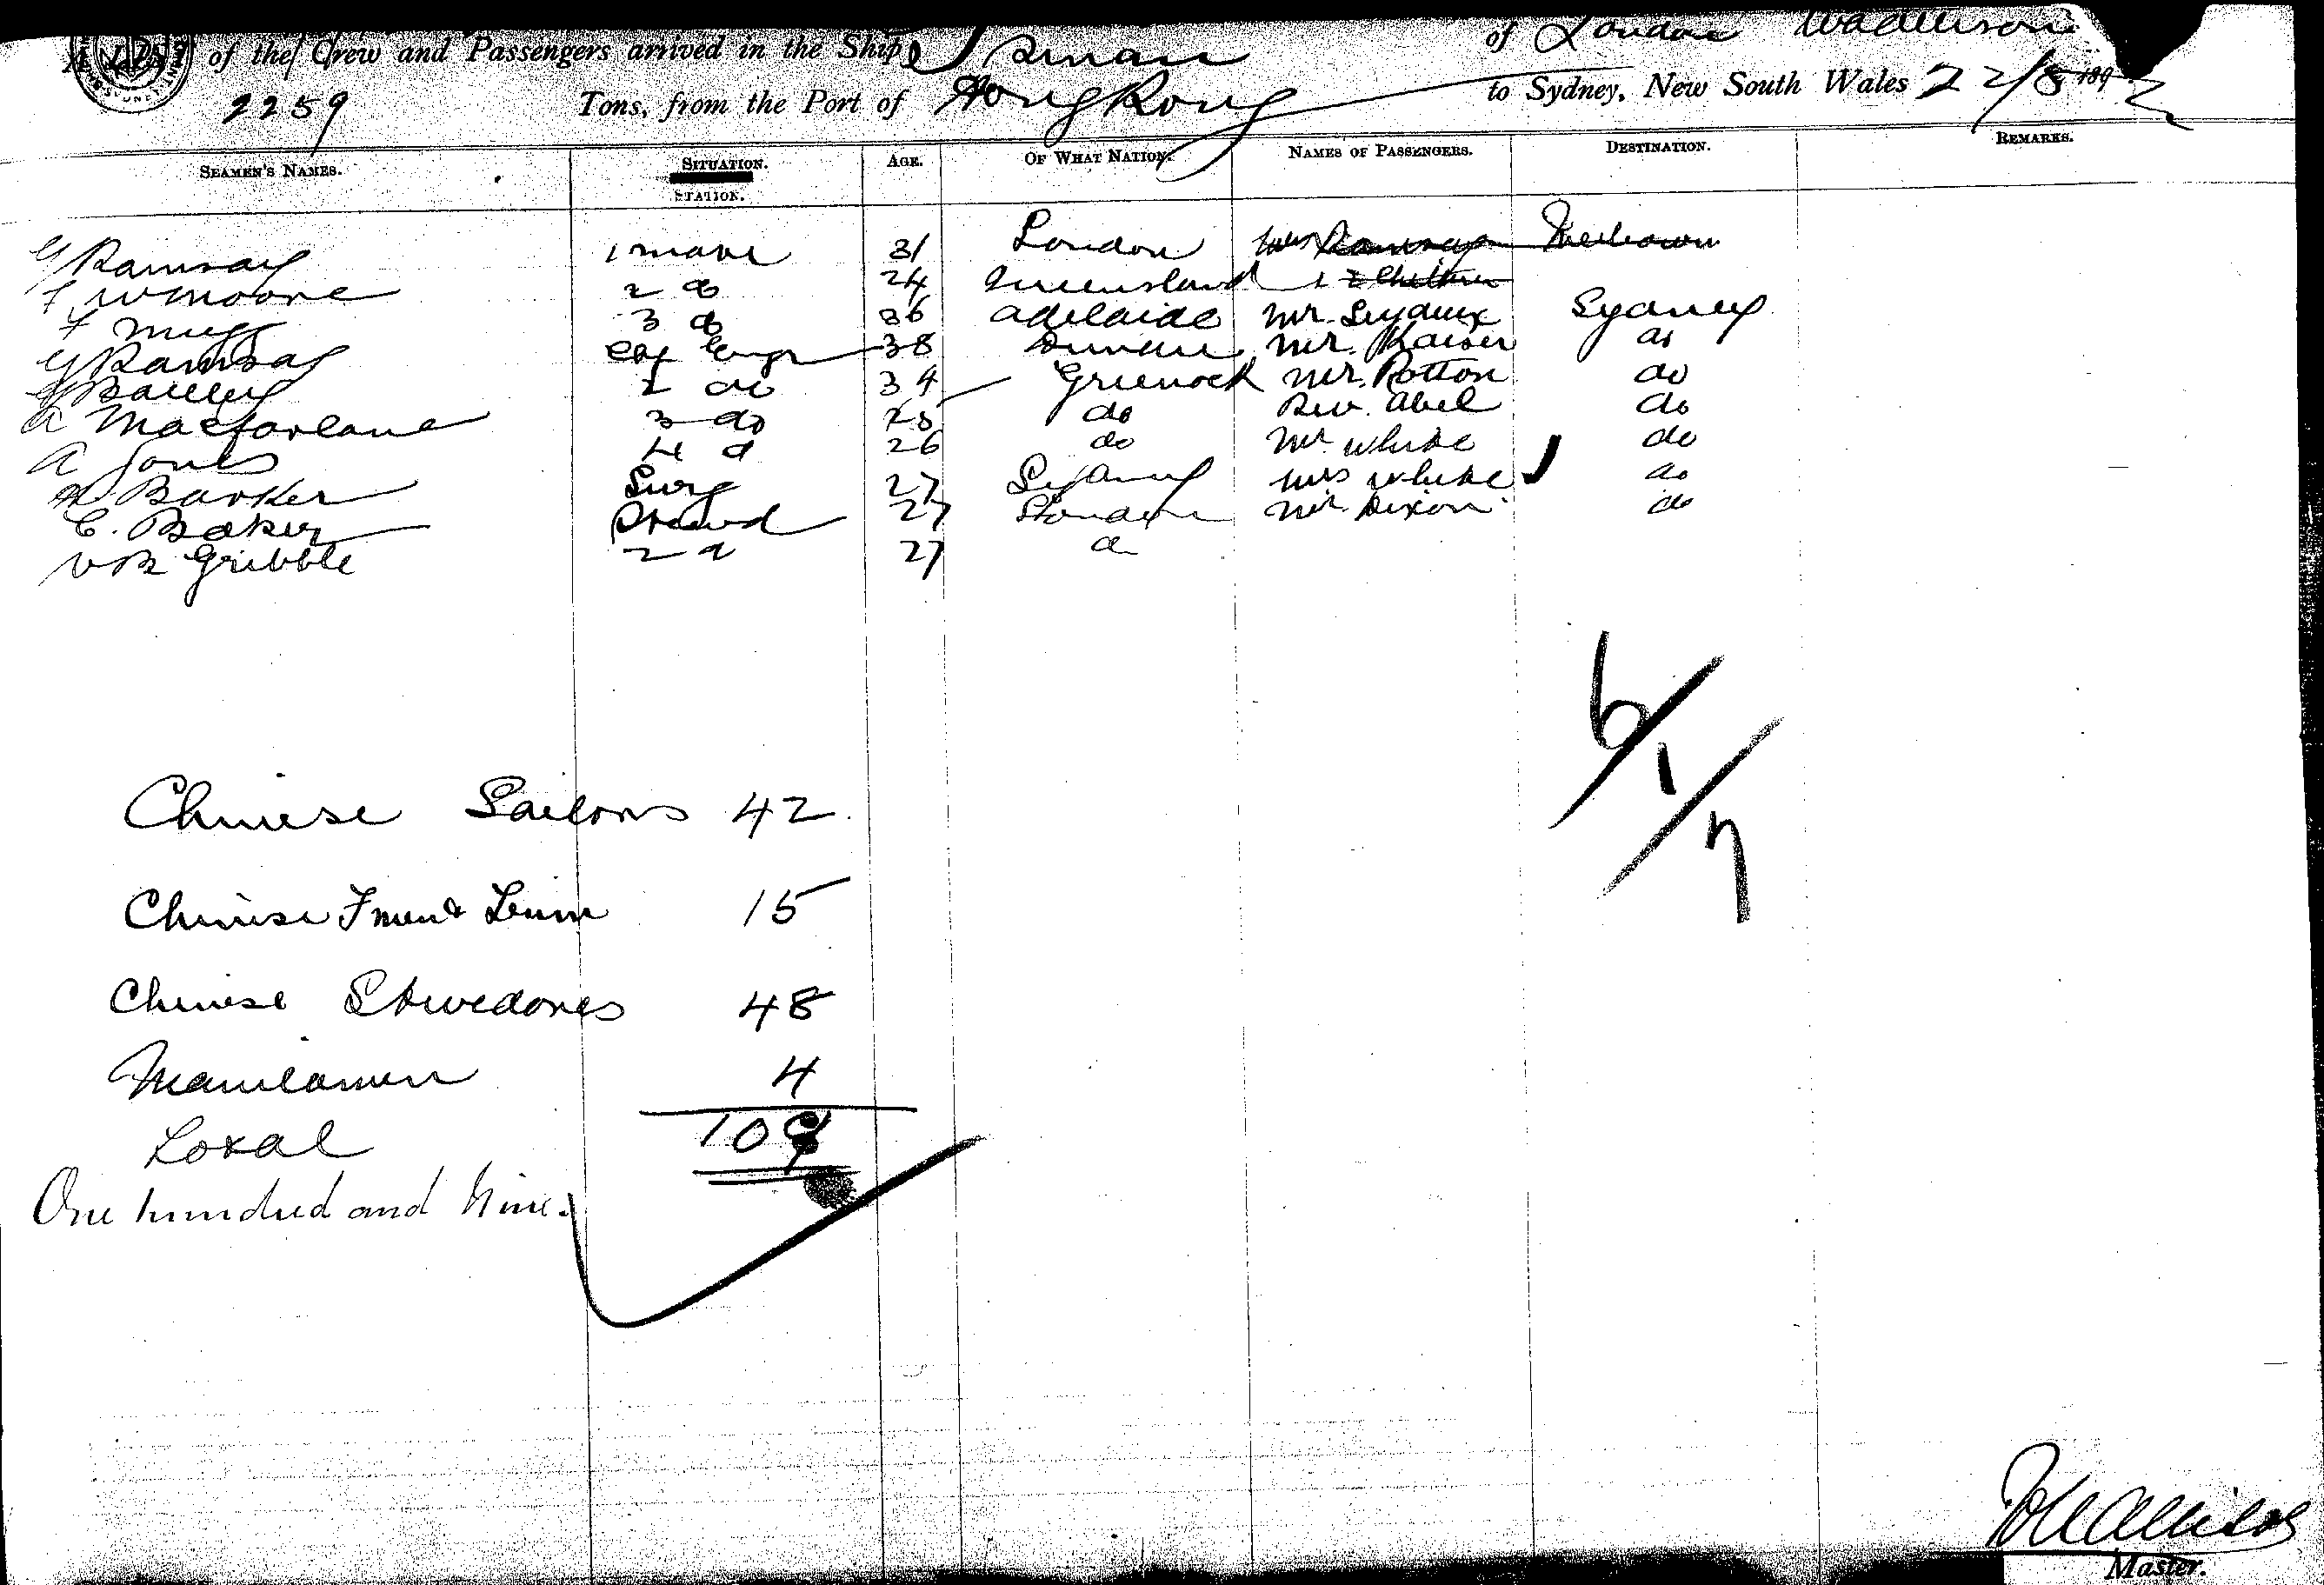 of the Crew and Passengers arrived in the Ship of London
2259 Tons, from the Port of Hong Kong to Sydney, New South Wales 22/8 189
SEAMEN'S NAMES. SITUATION. AGE. OF WHAT NATION. NAMES OF PASSENGERS. DESTINATION. REMARKS.
STATION.
G Ramsay 1 mate 31 London Mrs Ramsay
F W Moore 2 do 24 Queensland
3 do 36 Adelaide Mr. Sydney
G Ramsay 38 Mr. Kaiser do
2 do 34 Greenock Mr. Potton do
A Macfarlane 3 do do Rev. Abel do
A Jones 4 d 26 do Mr White do
Barker Surg 27 Sydney Mrs White do
C. Baker 27 London Mr Dixon do
V B Gribble 2 d 27
6/1/7
Chinese Sailors 42
Chinese 15
Chinese Stevedores 48
Manilamen 4
Total 109
One hundred and Nine.
Master.